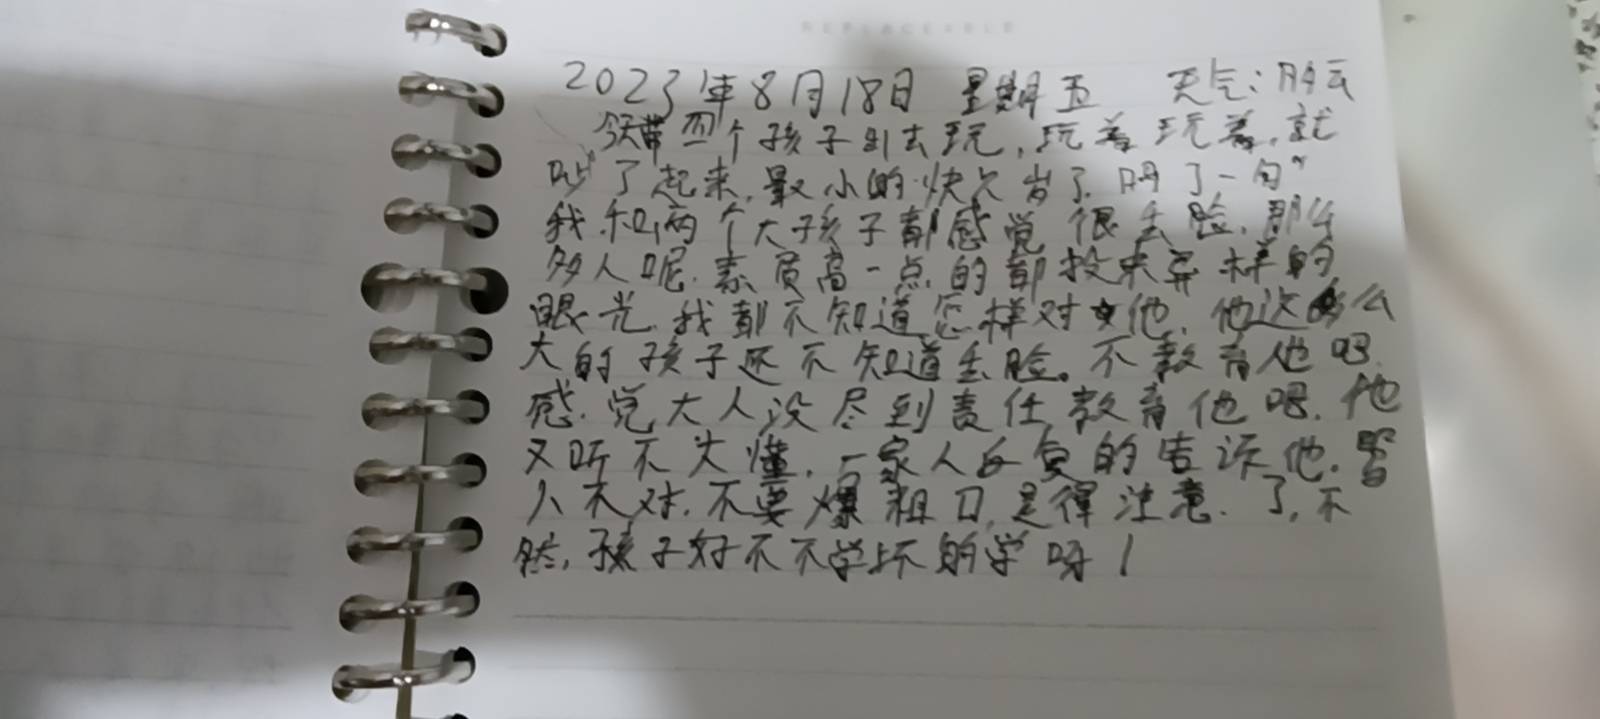 REPLACEABLE
2023年8月18日 星期五 天气:阴云
今天带四个孩子出去玩,玩着玩着,就
吵了起来,最小的快六岁了.骂了一句"
我和两个大孩子都感觉很丢脸,那么
多人呢.素质高一点的都投来异样的
眼光.我都不知道怎样对他.他这么
大的孩子还不知道丢脸。不教育他吧.
感.觉大人没尽到责任教育他吧.他
又听不太懂.一家人反复的告诉他.骂
人不对.不要爆粗口,是得注意.了,不
然,孩子好不不学坏的学呀!